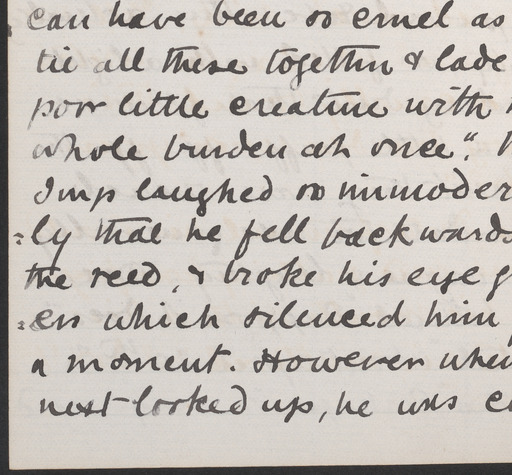 can have been so cruel as
tie all these together & lade
poor little creature with
whole burden at once."
Imp laughed so immoder
=ly that he fell backwards
the reed, & broke his eye g
=ers which silenced him
a moment. However when
next looked up, he was